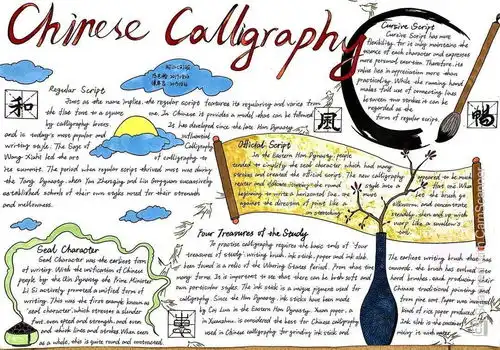 Chinese Calligraphy
Regular Script
Just as the name implies, the regular script features its regularity and varies from
the flat tone to a square one. In Chinese it provides a model that can be followed
by calligraphy lovers. It has developed since the late Han Dynasty
and is today's most popular and
writing style. The Sage of Calligraphy
Wang Xizhi led the art of calligraphy to
its summit. The period when regular script thrived most was during
the Tang Dynasty, when Yan Zhenqing and Liu Gongquan successively
established schools of their own styles noted for their strength
and mellowness.
和
風
暢
惠
Cursive Script
Cursive Script has more
flexibility, for it only maintains the
essence of each character and expresses
more personal exertion. Therefore, its
value lies in appreciation more than
practicality. While the running hand
makes full use of connecting lines
between two strokes it can be
regarded as the
form of regular script.
Official Script
In the Eastern Han Dynasty, people
tended to simplify the seal character which had many
strokes and created the official script. The new calligraphy appeared to be much
neater and delicate, turning the round style into a flat one. When
beginning, move the brush
against the direction of point like a silkworm, and concentrate
on stretching steadily, then end up with
warp like a swallow's
Seal Character
Seal Character was the earliest form
of writing. With the unification of Chinese
people by the Qin Dynasty, the Prime Minister
Li Si promoted a unified form of
writing. This was the first example known as
"seal character," which stresses a slender
font, even speed and strength, and even
and thick lines and strokes. When seen
as a whole, this is quite round and contoured.
Four Treasures of the Study
To practise calligraphy requires the basic tools of "four
treasures of study": writing brush, ink stick, paper and ink slab.
been found in a relic of the Warring States Period. From then there
many forms. It is important to see that there can be both soft and
own particular styles. The ink stick is a unique pigment used for
calligraphy. Since the Han Dynasty, ink sticks have been made
by Cui Lun in the Eastern Han Dynasty. Xuan paper,
in Xuanzhou, is considered the best for Chinese calligraphy
used in Chinese calligraphy for grinding ink stick and
The earliest writing brush that has
onwards, the brush has evolved into
hard brushes, each producing their
Chinese traditional painting and
from pine soot. Paper was invented
kind of rice paper produced
Ink slab is the container
mixing it with water.
CamScanner